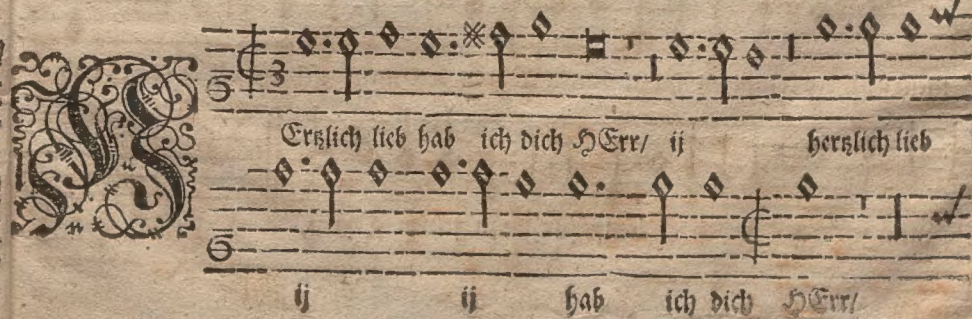 HErtzlich lieb hab ich dich HErr/ ij hertzlich lieb
ij ij hab ich dich HErr/